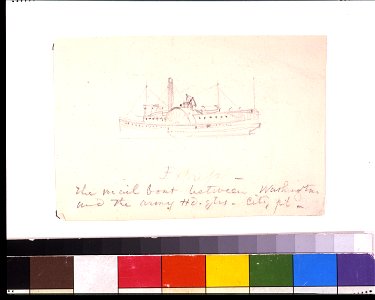 The mail boat between Washington
and the army Hd. qtrs. City pt.